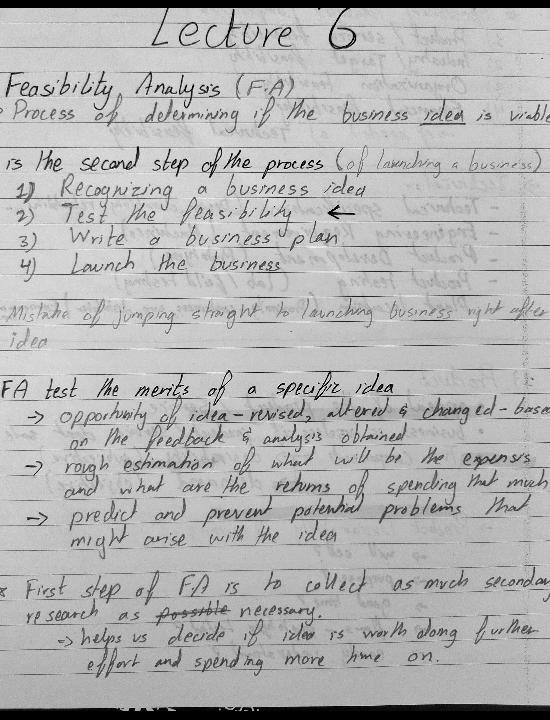 Lecture 6
Feasibility Analysis (F.A)
Process of determining if the business idea is viable
is the second step of the process (of launching a business)
1) Recognizing a business idea
2) Test the feasibility ←
3) Write a business plan
4) Launch the business
Mistake of jumping straight to launching business right after
idea
FA test the merits of a specific idea
→ opportunity of idea - revised, altered & changed - based
on the feedback & analysis obtained
→ rough estimation of what will be the expenses
and what are the returns of spending that much
→ predict and prevent potential problems that
might arise with the idea
* First step of FA is to collect as much secondary
research as possible necessary.
→ helps us decide if idea is worth doing further
effort and spending more time on.